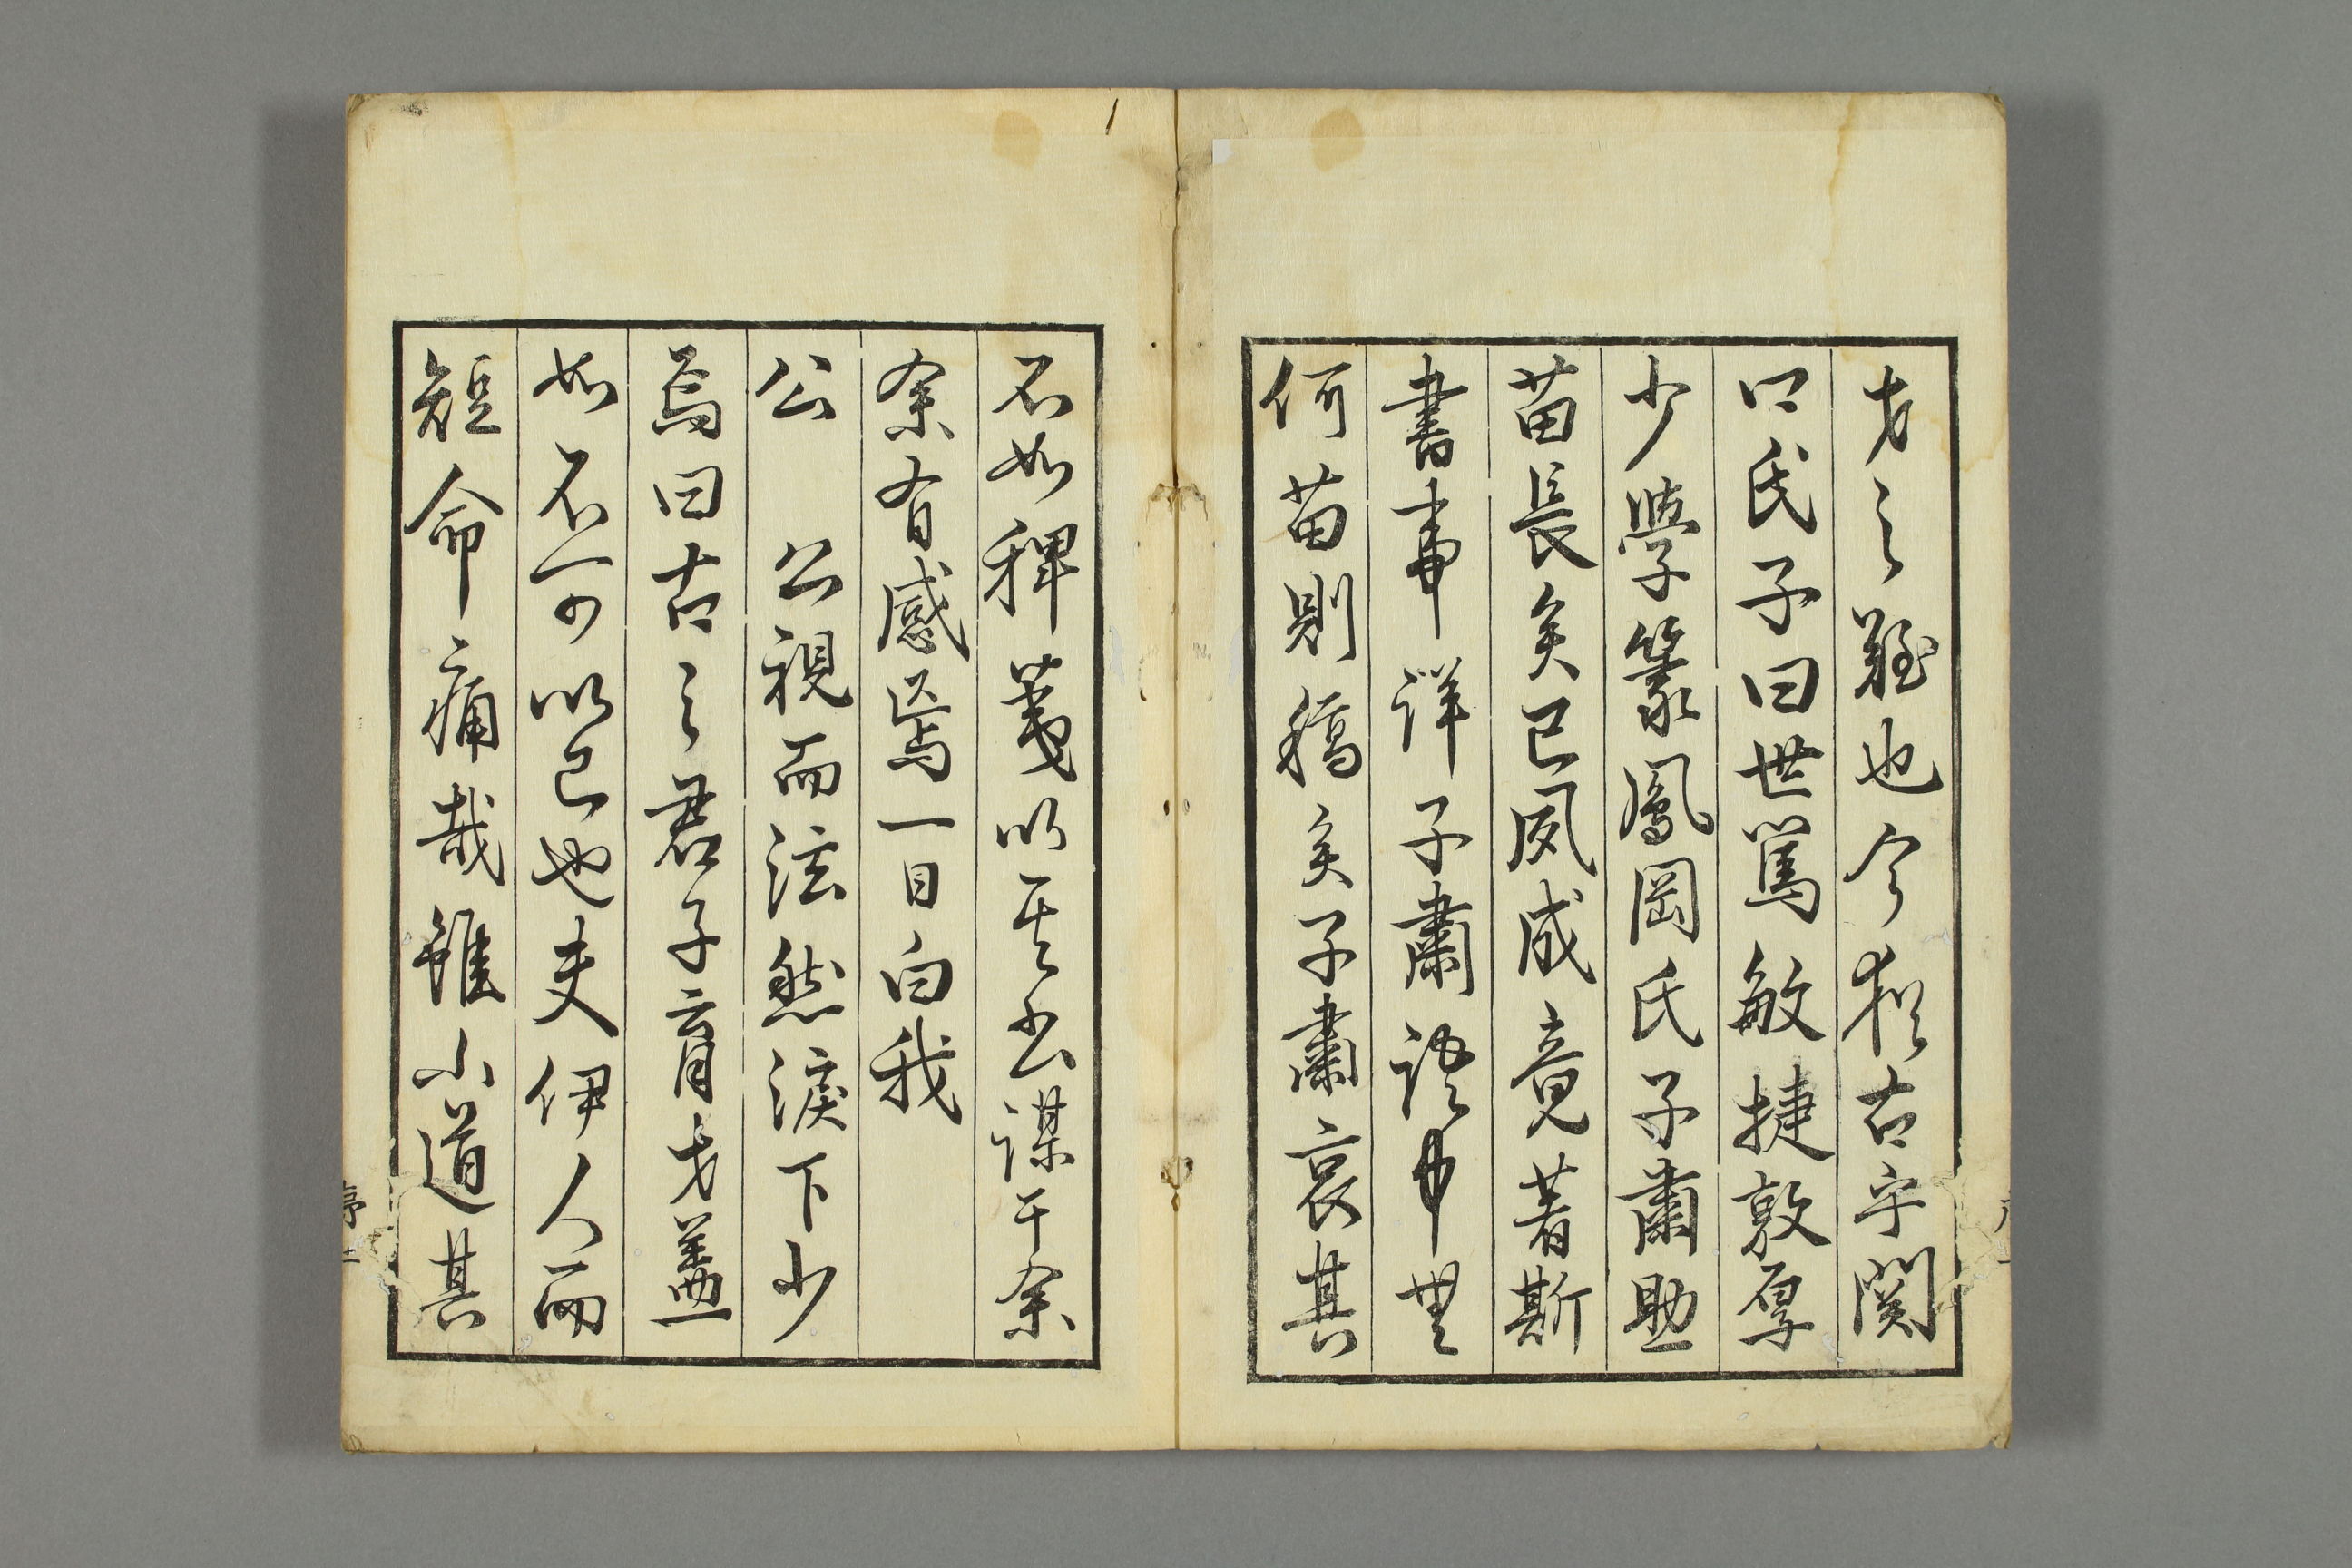 才之難也今猶古乎関
口氏子曰世篤敏捷敦厚
少學篆鳳岡氏子肅助
苗長矣已夙成竟著斯
書事詳子肅語中無
何苗則稿矣子肅哀其
不如稗荑以其書謀于余
余有感焉一日白我
公　公視而泫然淚下少
焉曰古之君子育才蓋
如不可以已也夫伊人而
短命痛哉雖小道其